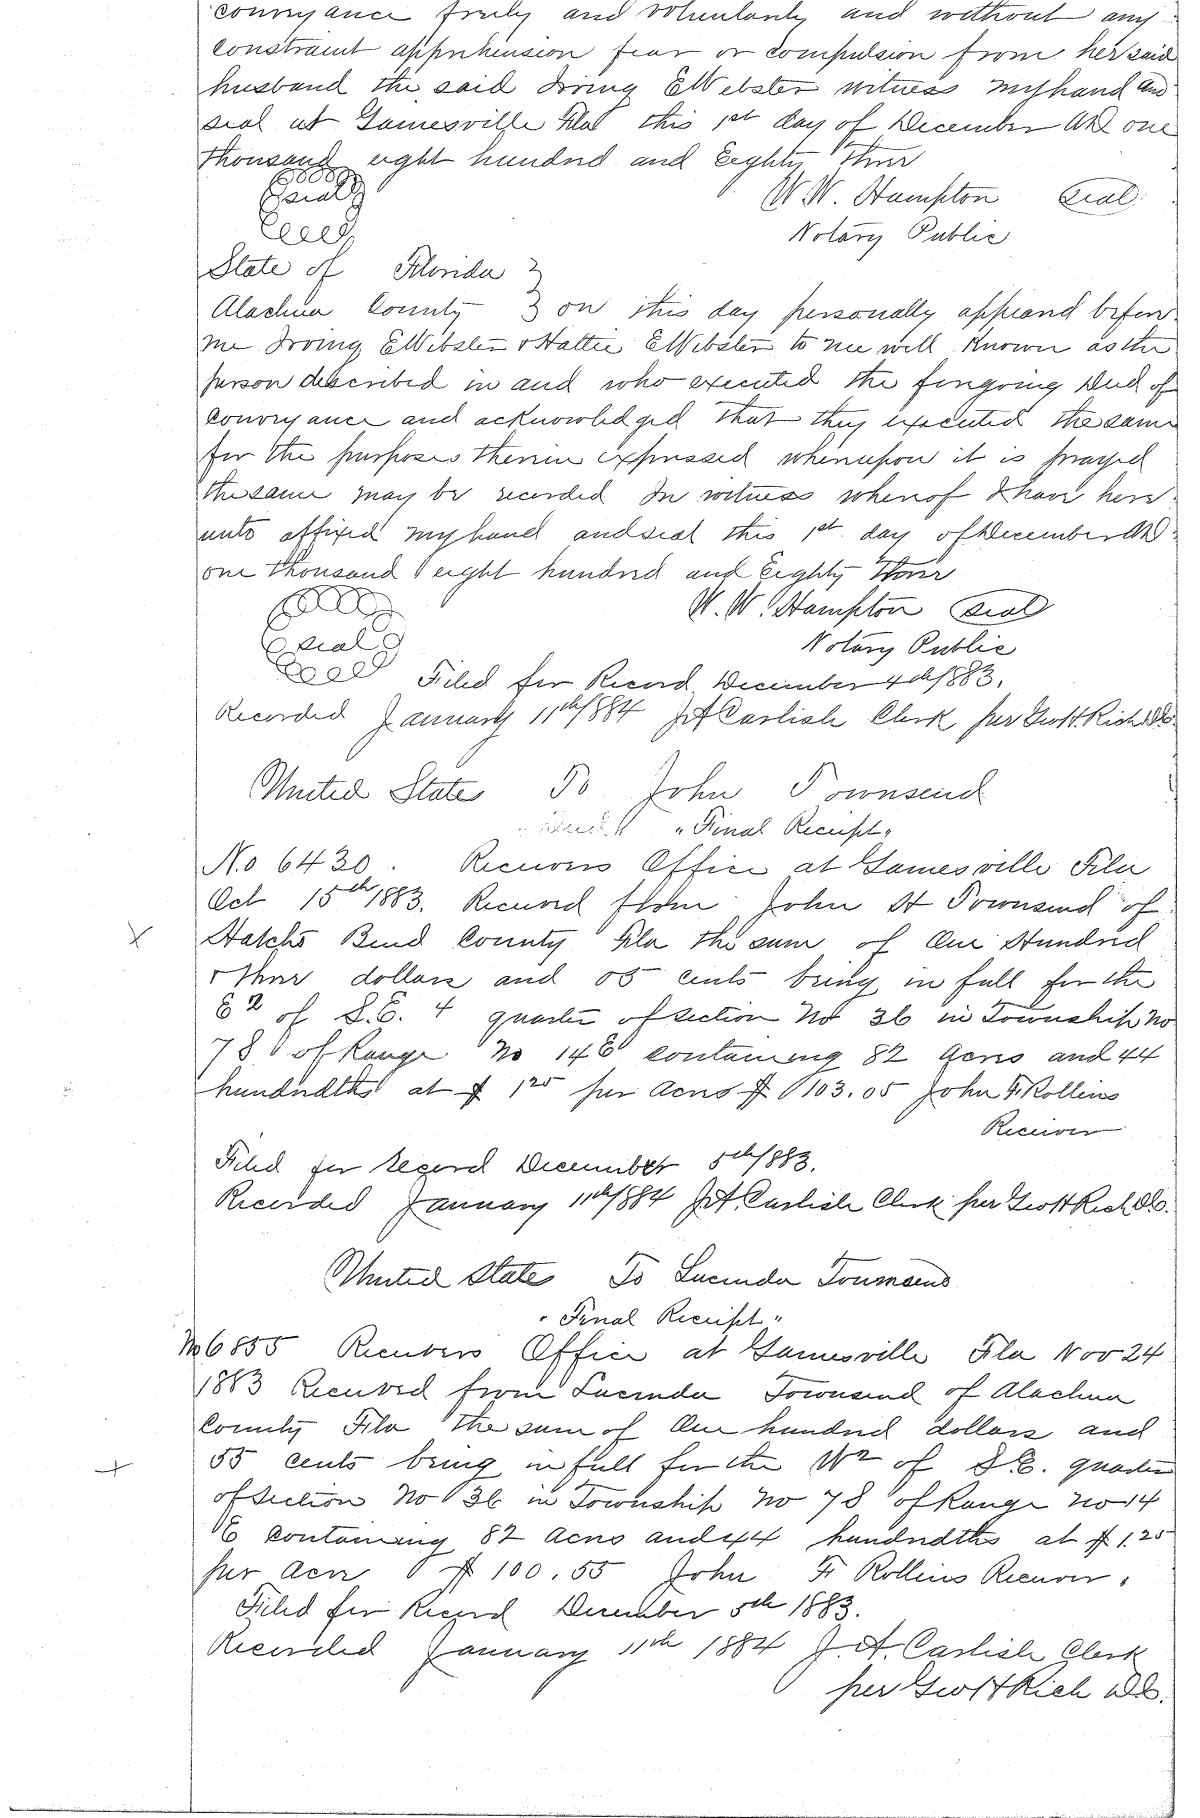 conveyance freely and voluntarily and without any
constraint apprehension fear or compulsion from her said
husband the said Irving E Webster witness my hand and
seal at Gainesville Fla this 1st day of December AD one
thousand eight hundred and Eighty Three
seal W. W. Hampton seal
Notary Public
State of Florida }
Alachua County } on this day personally appeared before
me Irving E Webster & Hattie E Webster to me well known as the
person described in and who executed the foregoing Deed of
conveyance and acknowledged that they executed the same
for the purposes therein expressed whereupon it is prayed
the same may be recorded In witness whereof I have here
unto affixed my hand and seal this 1st day of December AD
one thousand eight hundred and Eighty Three
W. W. Hampton seal
seal Notary Public
Filed for Record December 4th 1883.
Recorded January 11th 1884 J A Carlisle Clerk per Geo H. Rich D.C.
United States To John Townsend
"Final Receipt"
No 6430. Receivers Office at Gainesville Fla
Oct 15th 1883. Received from John H Townsend of
Hatchs Bend County Fla the sum of One Hundred
& three dollars and 05 cents being in full for the
E 2 of S.E. 4 quarter of section No 36 in Township No
7 S of Range No 14 E containing 82 acres and 44
hundredths at $ 1 25 per acres $ 103.05 John F. Rollins
Receiver
Filed for record December 5th 1883.
Recorded January 11th 1884 J. A. Carlisle Clerk per Geo H Rich D.C.
United States To Lucinda Townsend
"Final Receipt"
No 6855 Receivers Office at Gainesville Fla Nov 24
1883 Received from Lucinda Townsend of Alachua
County Fla the sum of One hundred dollars and
55 cents being in full for the W 2 of S.E. quarter
of section No 36 in Township No 7 S of Range No 14
E containing 82 acres and 44 hundredths at $ 1.25
per acre $ 100.55 John F Rollins Receiver.
Filed for Record December 5th 1883.
Recorded January 11th 1884 J. A. Carlisle Clerk
per Geo H Rich D.C.